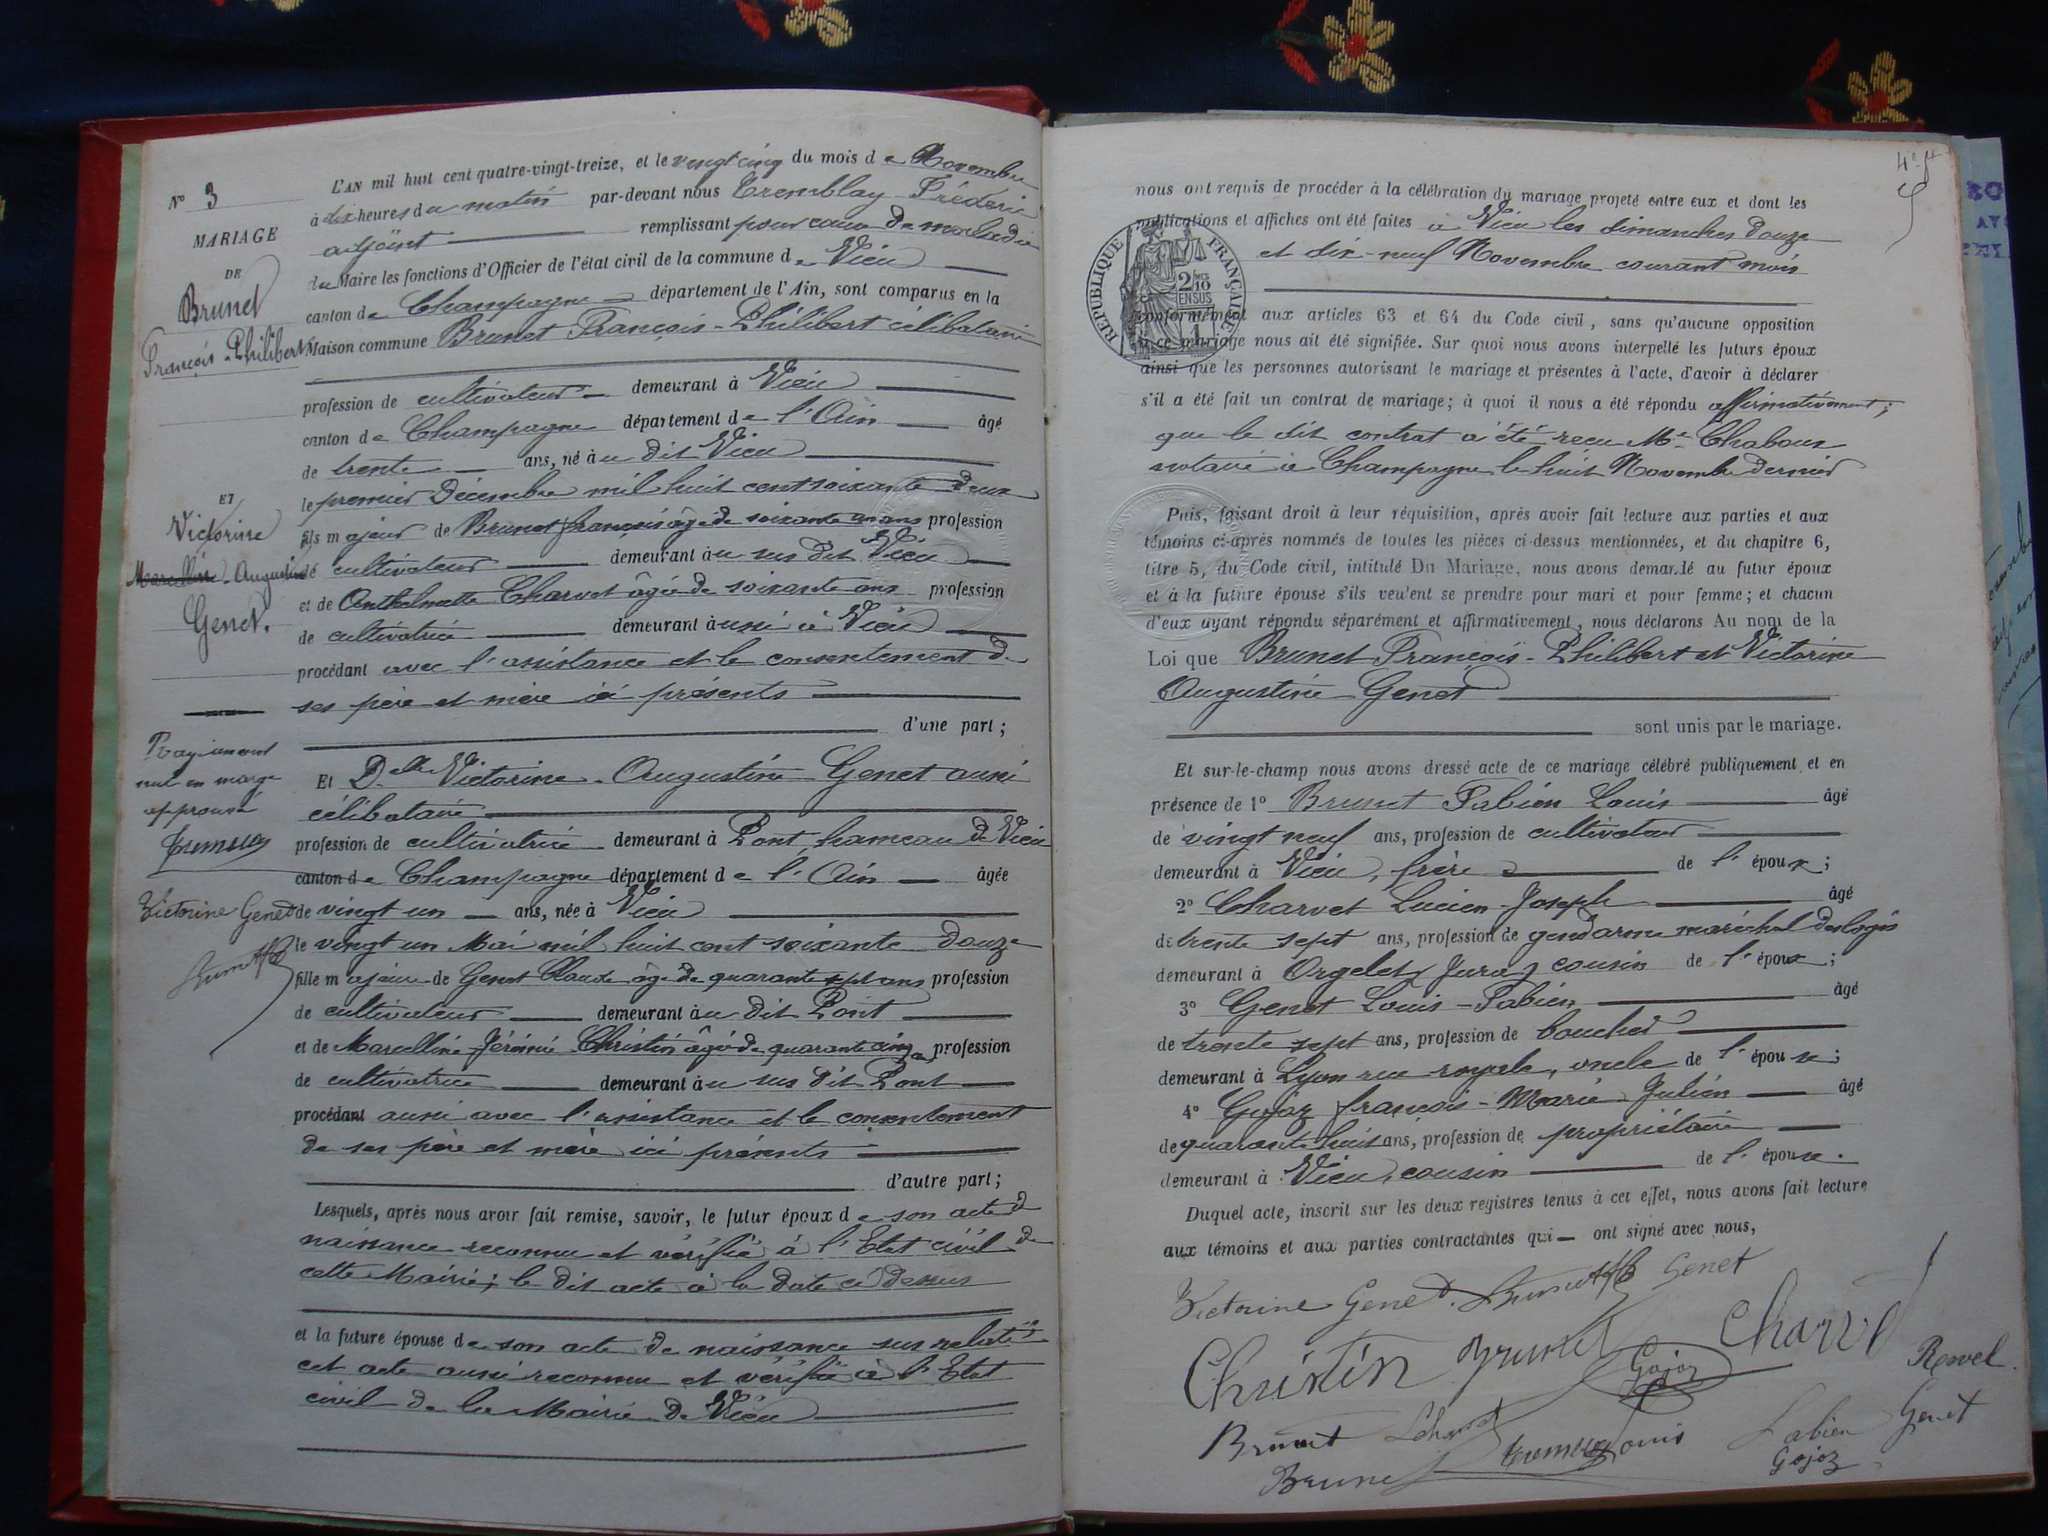 N° 3
MARIAGE
DE
Brunet
François-Philibert
ET
Victorine
Marcelline-Augustine
Genet.
nul en marge
approuvé
Victorine Genet
L'AN mil huit cent quatre-vingt-treize, et le vingt cinq du mois de Novembre
à dix heures du matin par-devant nous Tremblay Fréderic
adjoint remplissant pour cause de maladie
du Maire les fonctions d'Officier de l'état civil de la commune de Vieu
canton de Champagne département de l'Ain, sont comparus en la
Maison commune Brunet François-Philibert célibataire
profession de cultivateur demeurant à Vieu
canton de Champagne département de l'Ain âgé
de trente ans, né àu dit Vieu
le premier Décembre mil huit cent soixante deux
fils majeur de Brunet françois âgé de soixante un ans profession
de cultivateur demeurant àu sus dit Vieu
et de Anthelmette Charvet âgée de soixante ans profession
de cultivatrice demeurant aussi à Vieu
procédant avec l'assistance et le consentement de
ses père et mère ici présents
d'une part ;
Et Delle Victorine-Augustine Genet aussi
célibataire
profession de cultivatrice demeurant à Pont, hameau de Vieu
canton de Champagne département de l'Ain âgée
de vingt un ans, née à Vieu
le vingt un Mai mil huit cent soixante douze
fille majeure de Genet Claude âgé de quarante sept ans profession
de cultivateur demeurant àu dit Pont
et de Marcelline-Jérémie Christin âgée de quarante cinq profession
de cultivatrice demeurant àu sus dit Pont
procédant aussi avec l'assistance et le consentement
de ses père et mère ici présents
d'autre part ;
Lesquels, après nous avoir fait remise, savoir, le futur époux de son acte de
naissance reconnu et vérifié à l'Etat civil de
cette Mairie ; le dit acte à la date ci dessus
et la future épouse de son acte de naissance sus relaté
cet acte aussi reconnu et vérifié à l'Etat
civil de la Mairie de Vieu
nous ont requis de procéder à la célébration du mariage projeté entre eux et dont les
publications et affiches ont été faites à Vieu les dimanches douze
et dix-neuf Novembre courant mois
RÉPUBLIQUE FRANÇAISE
2/10
EN SUS
conformément aux articles 63 et 64 du Code civil, sans qu'aucune opposition
à ce mariage nous ait été signifiée. Sur quoi nous avons interpellé les futurs époux
ainsi que les personnes autorisant le mariage et présentes à l'acte, d'avoir à déclarer
s'il a été fait un contrat de mariage ; à quoi il nous a été répondu affirmativement ;
que le dit contrat a été reçu Me Chaboux
notaire à Champagne le huit Novembre dernier
Puis, faisant droit à leur réquisition, après avoir fait lecture aux parties et aux
témoins ci-après nommés de toutes les pièces ci-dessus mentionnées, et du chapitre 6,
titre 5, du Code civil, intitulé Du Mariage, nous avons demandé au futur époux
et à la future épouse s'ils veulent se prendre pour mari et pour femme ; et chacun
d'eux ayant répondu séparément et affirmativement, nous déclarons Au nom de la
Loi que Brunet François-Philibert et Victorine
Augustine Genet
sont unis par le mariage.
Et sur-le-champ nous avons dressé acte de ce mariage célébré publiquement et en
présence de 1° Brunet Fabien Louis âgé
de vingt neuf ans, profession de cultivateur
demeurant à Vieu, frère de l'époux ;
2° Charvet Lucien-Joseph âgé
de trente sept ans, profession de gendarme maréchal des logis
demeurant à Orgelet (Jura) cousin de l'époux ;
3° Genet Louis-Fabien âgé
de trente sept ans, profession de boucher
demeurant à Lyon rue royale, oncle de l'épouse ;
4° Gojoz françois-Marie Julien âgé
de quarante huit ans, profession de propriétaire
demeurant à Vieu, cousin de l'épouse.
Duquel acte, inscrit sur les deux registres tenus à cet effet, nous avons fait lecture
aux témoins et aux parties contractantes qui ont signé avec nous,
Victorine Genet Genet
Christin Brunet Gojoz Charvet
Brunet Louis Fabien Genet
Brunet Gojoz